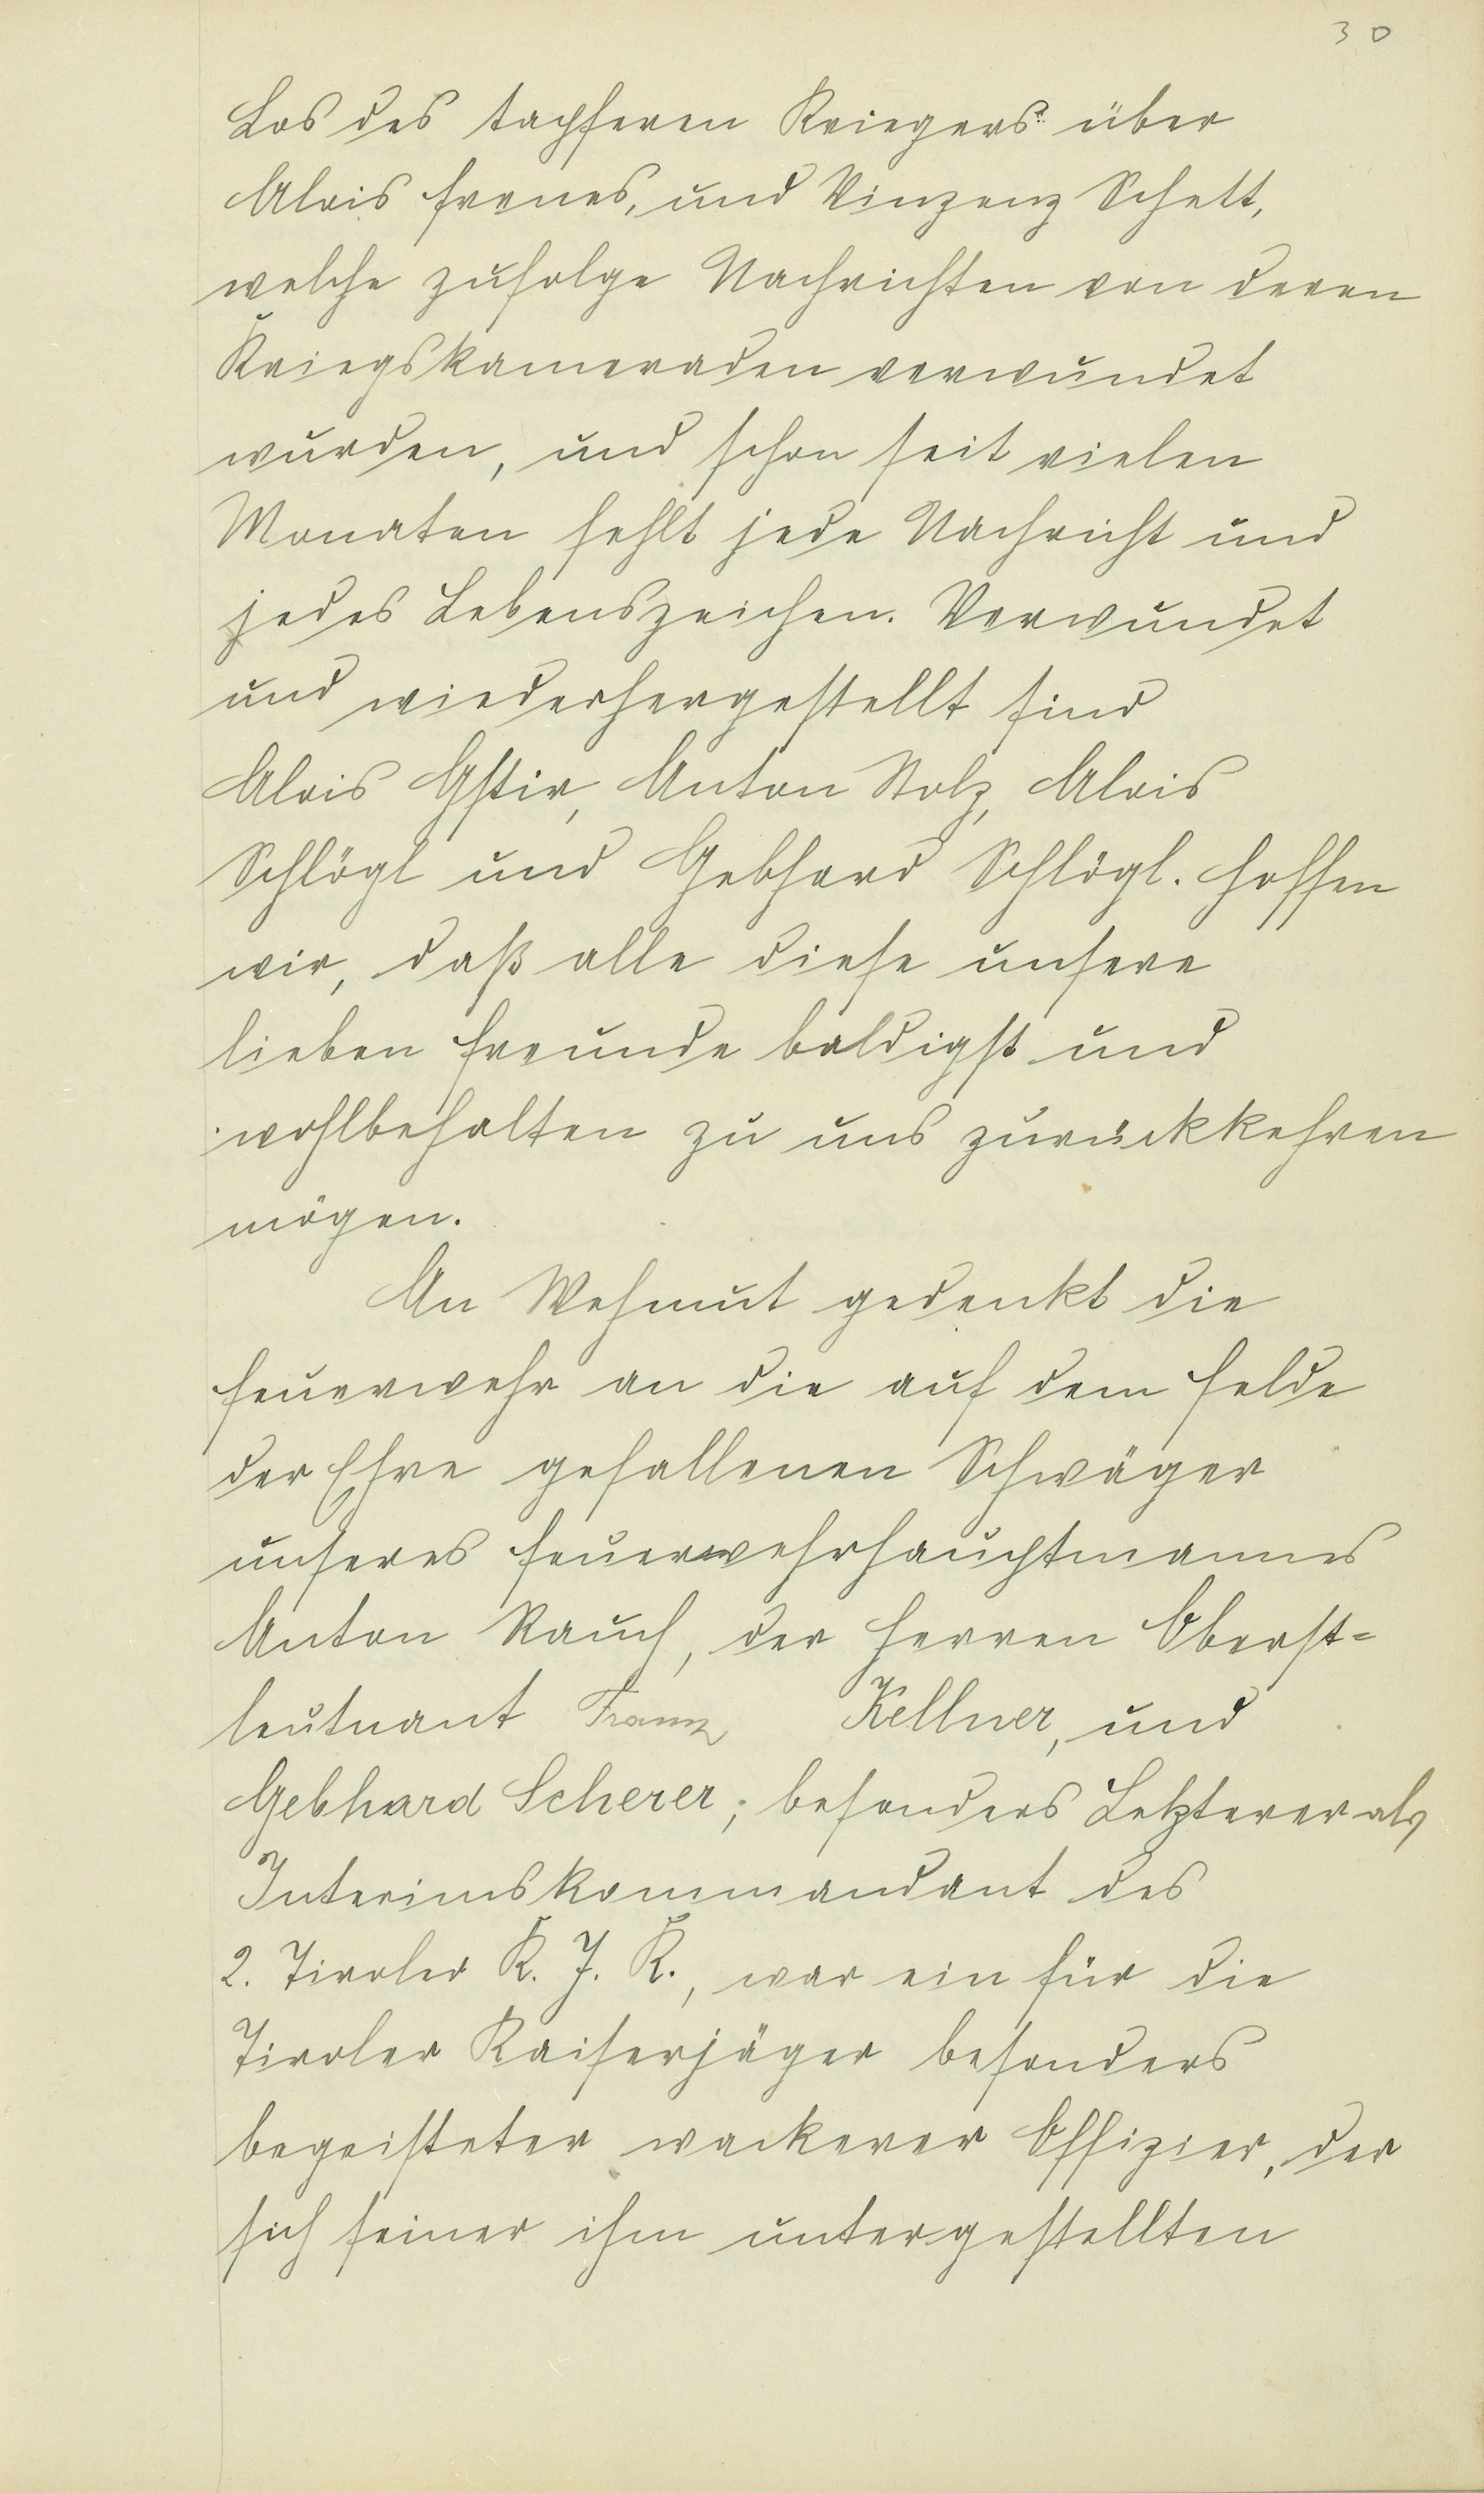 30
Los des tapferen Kriegers über
Alois Frenes, und Vinzenz Schett,
welche zufolge Nachrichten von deren
Kriegskameraden verwundet
wurden, und schon seit vielen
Monaten fehlt jede Nachricht und
jedes Lebenszeichen. Verwundet
und wiederhergestellt sind
Alois Gstir, Anton Stolz, Alois
Schlögl und Gebhard Schlögl. Hoffen
wir, daß alle diese unsere
lieben Freunde baldigst und
wohlbehalten zu uns zurückkehren
mögen.
An Wehmut gedenkt die
Feuerwehr an die auf dem Felde
der Ehre gefallenen Schwäger
unseres Feuerwehrhauptmannes
Anton Rauch, der Herren Oberst=
leutnant Franz Kellner, und
Gebhard Scherer; besonders Letzterer als
Interimskommandant des
2. Tiroler K. J. R., war ein für die
Tiroler Kaiserjäger besonders
begeisteter wackerer Offizier, der
sich seiner ihm untergestellten